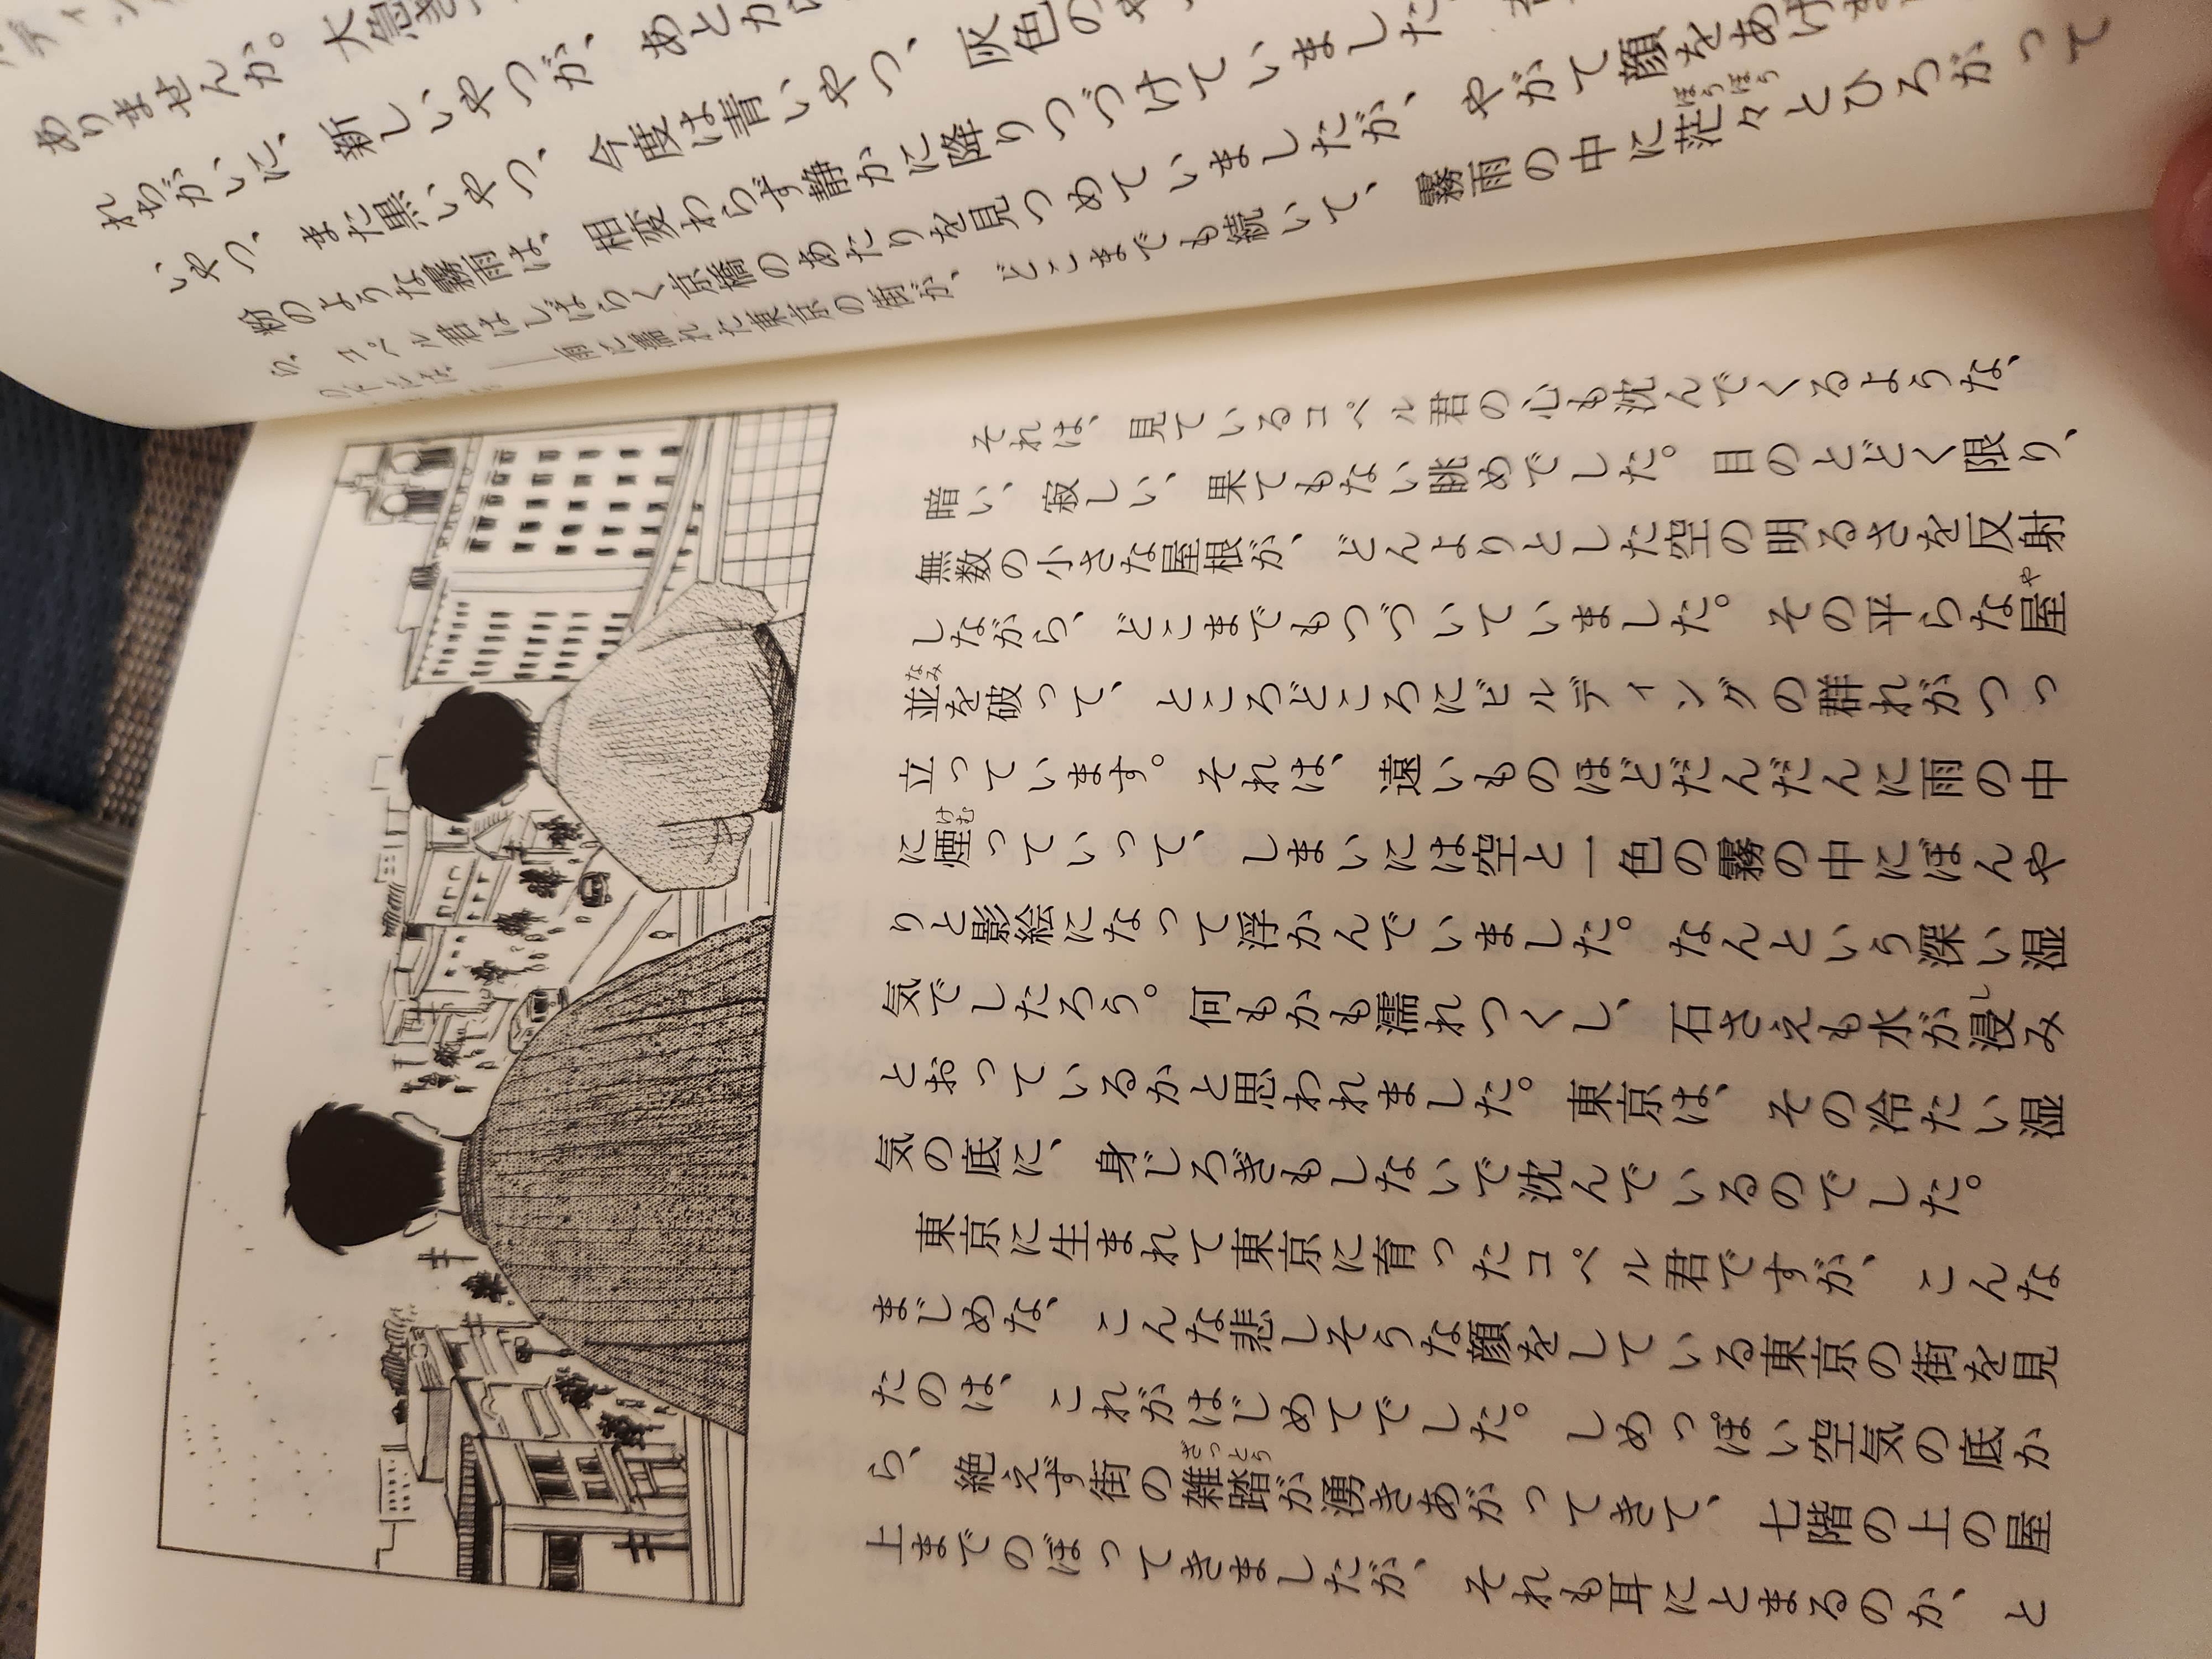 ありませんか。大急ぎ
れちがいに、新しいやつが、あとから
いやつ、また黒いやつ、今度は青いやつ、灰色のや
粉のような霧雨は、相変わらず静かに降りつづけていました
ら、コペル君はしばらく京橋のあたりを見つめていましたが、やがて顔をあげ
ぼうぼう
の下には、――雨に濡れた東京の街が、どこまでも続いて、霧雨の中に茫々とひろがって
それは、見ているコペル君の心も沈んでくるような、
暗い、寂しい、果てもない眺めでした。目のとどく限り、
無数の小さな屋根が、どんよりとした空の明るさを反射
や
しながら、どこまでもつづいていました。その平らな屋
なみ
並を破って、ところどころにビルディングの群れがつっ
立っています。それは、遠いものほどだんだんに雨の中
けむ
に煙っていって、しまいには空と一色の霧の中にぼんや
りと影絵になって浮かんでいました。なんという深い湿
し
気でしたろう。何もかも濡れつくし、石さえも水が浸み
とおっているかと思われました。東京は、その冷たい湿
気の底に、身じろぎもしないで沈んでいるのでした。
東京に生まれて東京に育ったコペル君ですが、こんな
まじめな、こんな悲しそうな顔をしている東京の街を見
たのは、これがはじめてでした。しめっぽい空気の底か
ざっとう
ら、絶えず街の雑踏が湧きあがってきて、七階の上の屋
上までのぼってきましたが、それも耳にとまるのか、と